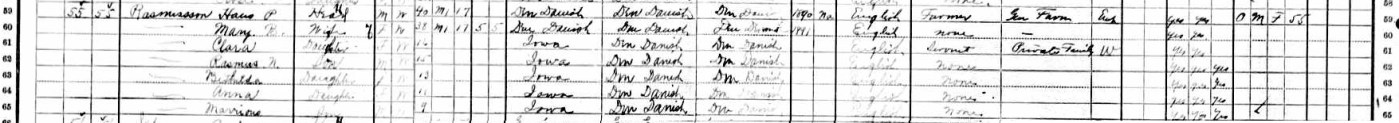 59 55 55 Rasmusson Hans P. Head M W 40 M1 17 Den Danish Den Danish Den Danish 1890 Na English Farmer Gen Farm Emp yes yes O M F 55 59
60 Mary B. Wife F W 38 M1 17 5 5 Den Danish Den Danish Den Danish 1891 English none — yes yes 60
61 Clara Daughter F W 16 Iowa Den Danish Den Danish English Servant Private Family W yes yes 61
62 Rasmus N. Son M W 15 Iowa Den Danish Den Danish English None yes yes yes 62
63 Daughter F W 13 Iowa Den Danish Den Danish English None yes yes yes 63
64 Anna Daughter F W 11 Iowa Den Danish Den Danish English None yes yes yes 64
65 Son M W 9 Iowa Den Danish Den Danish English None yes yes yes 65